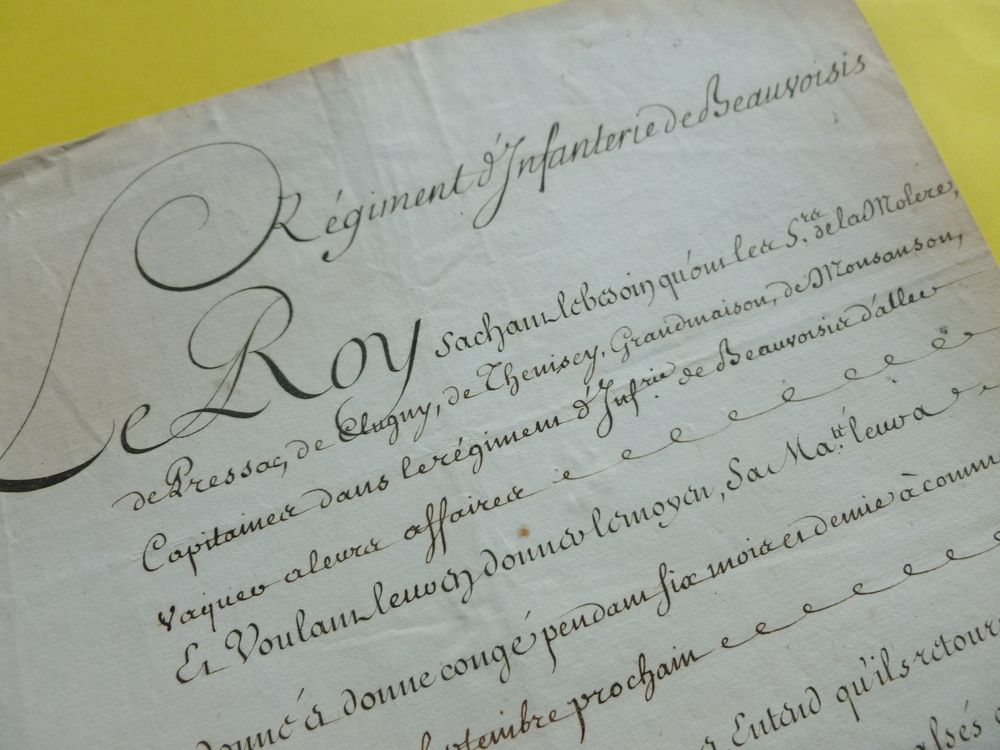 Régiment d'Infanterie de Beauvoisis
Le Roy sachant le besoin qu'ont les S.rs de la Molere,
de Pressac, de Clugny, de Thenisey, Grandmaison, de Monsanson,
Capitaines dans le régiment d'Inf.rie de Beauvoisis d'aller
vaquer a leurs affaires
Et Voulant leur en donner le moyen, Sa Ma.té leur a
donné & donne congé pendant six mois et demie à comm
septembre prochain
Entend qu'ils retour
alsés